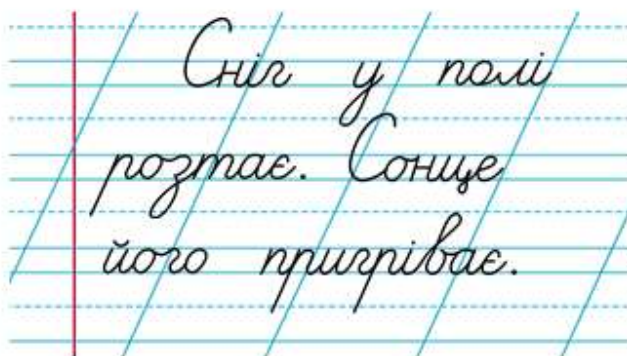 Сніг у полі
розтає. Сонце
його пригріває.